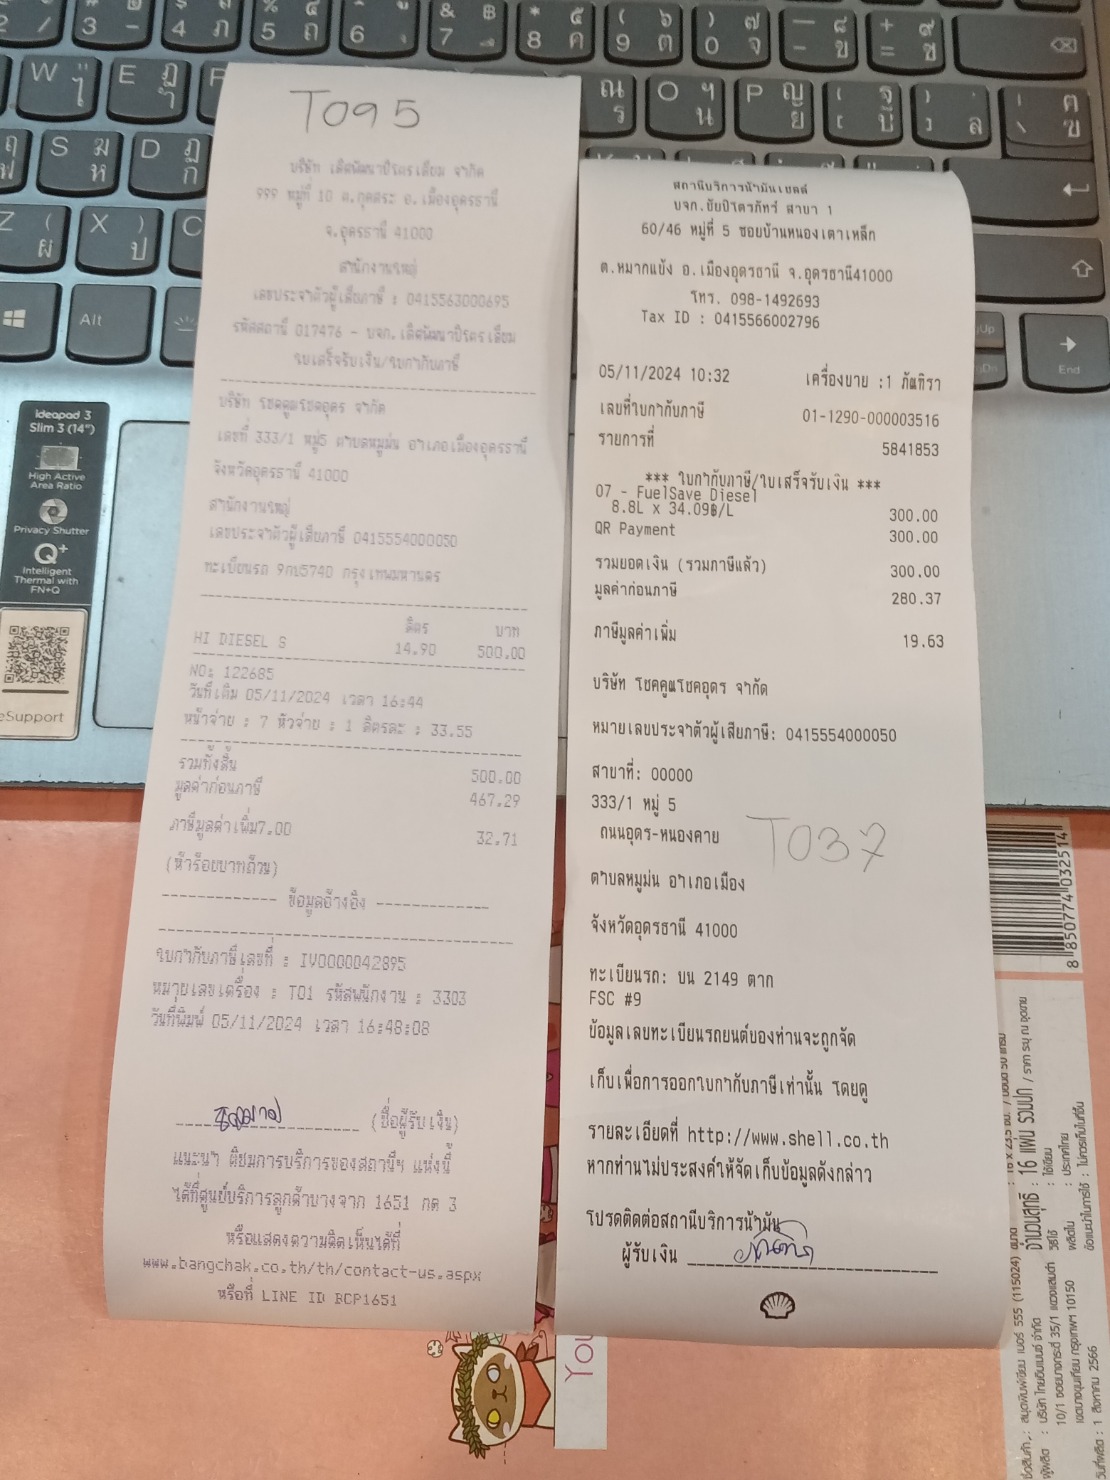 T095
บริษัท เลิศพัฒนาปิโตรเลียม จำกัด
999 หมู่ที่ 10 ต.กุดสระ อ.เมืองอุดรธานี
จ.อุดรธานี 41000
สำนักงานใหญ่
เลขประจำตัวผู้เสียภาษี : 0415563000695
รหัสสถานี 017476 - บจก. เลิศพัฒนาปิโตรเลียม
ใบเสร็จรับเงิน/ใบกำกับภาษี
บริษัท โชคคูณโชคอุดร จำกัด
เลขที่ 333/1 หมู่5 ตำบลหมูม่น อำเภอเมืองอุดรธานี
จังหวัดอุดรธานี 41000
สำนักงานใหญ่
เลขประจำตัวผู้เสียภาษี 0415554000050
ทะเบียนรถ 9กบ5740 กรุงเทพมหานคร
ลิตร บาท
HI DIESEL S 14.90 500.00
NO: 122685
วันที่เติม 05/11/2024 เวลา 16:44
หน้าจ่าย : 7 หัวจ่าย : 1 ลิตรละ : 33.55
รวมทั้งสิ้น 500.00
มูลค่าก่อนภาษี 467.29
ภาษีมูลค่าเพิ่ม7.00 32.71
(ห้าร้อยบาทถ้วน)
------------ ข้อมูลอ้างอิง ------------
ใบกำกับภาษีเลขที่ : IV0000042895
หมายเลขเครื่อง : T01 รหัสพนักงาน : 3303
วันที่พิมพ์ 05/11/2024 เวลา 16:48:08
(ชื่อผู้รับเงิน)
แนะนำ ติชมการบริการของสถานีฯ แห่งนี้
ได้ที่ศูนย์บริการลูกค้าบางจาก 1651 กด 3
หรือแสดงความคิดเห็นได้ที่
www.bangchak.co.th/th/contact-us.aspx
หรือที่ LINE ID BCP1651
สถานีบริการน้ำมันเชลล์
บจก.ชัยปิโตรภัทร์ สาขา 1
60/46 หมู่ที่ 5 ซอยบ้านหนองเตาเหล็ก
ต.หมากแข้ง อ.เมืองอุดรธานี จ.อุดรธานี41000
โทร. 098-1492693
Tax ID : 0415566002796
05/11/2024 10:32 เครื่องขาย :1 ภัณฑิรา
เลขที่ใบกำกับภาษี 01-1290-000003516
รายการที่ 5841853
*** ใบกำกับภาษี/ใบเสร็จรับเงิน ***
07 - FuelSave Diesel
8.8L x 34.09฿/L 300.00
QR Payment 300.00
รวมยอดเงิน (รวมภาษีแล้ว) 300.00
มูลค่าก่อนภาษี 280.37
ภาษีมูลค่าเพิ่ม 19.63
บริษัท โชคคูณโชคอุดร จำกัด
หมายเลขประจำตัวผู้เสียภาษี: 0415554000050
สาขาที่: 00000
333/1 หมู่ 5
ถนนอุดร-หนองคาย
T037
ตำบลหมูม่น อำเภอเมือง
จังหวัดอุดรธานี 41000
ทะเบียนรถ: บน 2149 ตาก
FSC #9
ข้อมูลเลขทะเบียนรถยนต์ของท่านจะถูกจัด
เก็บเพื่อการออกใบกำกับภาษีเท่านั้น โดยดู
รายละเอียดที่ http://www.shell.co.th
หากท่านไม่ประสงค์ให้จัดเก็บข้อมูลดังกล่าว
โปรดติดต่อสถานีบริการน้ำมัน
ผู้รับเงิน
ideapad 3
Slim 3 (14")
High Active
Area Ratio
Privacy Shutter
Q+
Intelligent
Thermal with
FN+Q
eSupport
Alt
End
You
8 850774 032514
จำนวนสุทธิ : 16 แผ่น รวมปก / ราคา ระบุ ณ จุดขาย